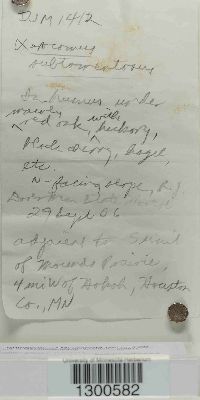 DJM 1412
Xerocomus
subtomentosus
In humus under
mainly with
red oak, hickory,
Black cherry, hazel,
etc.
N-facing slope, R.J.
Dorer Mem
29 Sept 06
adjacent to Summit
of Mounds Prairie,
4 mi W of Hokah, Houston
Co., MN
University of Minnesota Herbarium
1300582